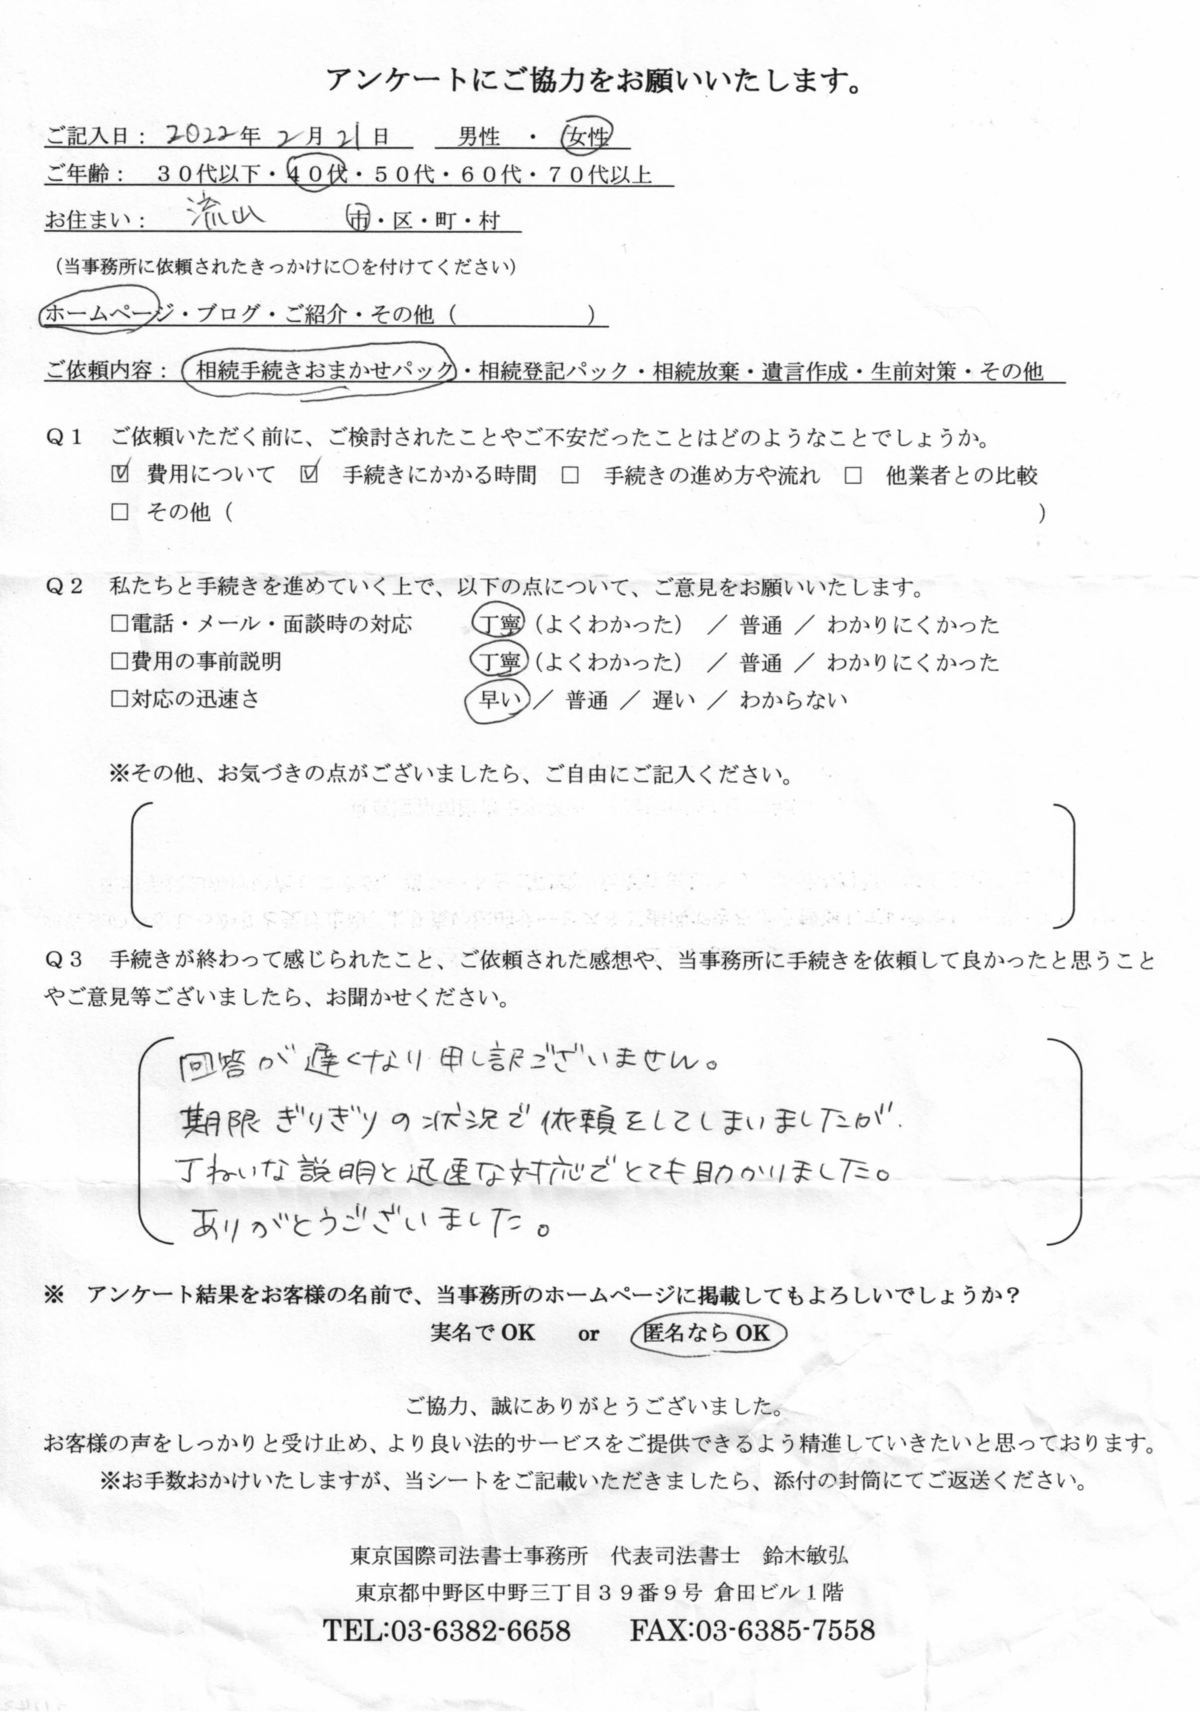 アンケートにご協力をお願いいたします。
ご記入日： 2022年 2月 21日　男性　・　女性
ご年齢：　３０代以下・４０代・５０代・６０代・７０代以上
お住まい：　流山　市・区・町・村
（当事務所に依頼されたきっかけに○を付けてください）
ホームページ・ブログ・ご紹介・その他（　　　　　　）
ご依頼内容：　相続手続きおまかせパック・相続登記パック・相続放棄・遺言作成・生前対策・その他
Ｑ１　ご依頼いただく前に、ご検討されたことやご不安だったことはどのようなことでしょうか。
☑ 費用について　☑ 手続きにかかる時間　□ 手続きの進め方や流れ　□ 他業者との比較
□ その他（　　　　　　）
Ｑ２　私たちと手続きを進めていく上で、以下の点について、ご意見をお願いいたします。
□電話・メール・面談時の対応　丁寧（よくわかった）／ 普通 ／ わかりにくかった
□費用の事前説明　丁寧（よくわかった）／ 普通 ／ わかりにくかった
□対応の迅速さ　早い ／ 普通 ／ 遅い ／ わからない
※その他、お気づきの点がございましたら、ご自由にご記入ください。
Ｑ３　手続きが終わって感じられたこと、ご依頼された感想や、当事務所に手続きを依頼して良かったと思うこと
やご意見等ございましたら、お聞かせください。
回答が遅くなり申し訳ございません。
期限ぎりぎりの状況で依頼をしてしまいましたが、
丁ねいな説明と迅速な対応でとても助かりました。
ありがとうございました。
※　アンケート結果をお客様の名前で、当事務所のホームページに掲載してもよろしいでしょうか？
実名でOK　or　匿名ならOK
ご協力、誠にありがとうございました。
お客様の声をしっかりと受け止め、より良い法的サービスをご提供できるよう精進していきたいと思っております。
※お手数おかけいたしますが、当シートをご記載いただきましたら、添付の封筒にてご返送ください。
東京国際司法書士事務所　代表司法書士　鈴木敏弘
東京都中野区中野三丁目３９番９号 倉田ビル１階
TEL:03-6382-6658　FAX:03-6385-7558